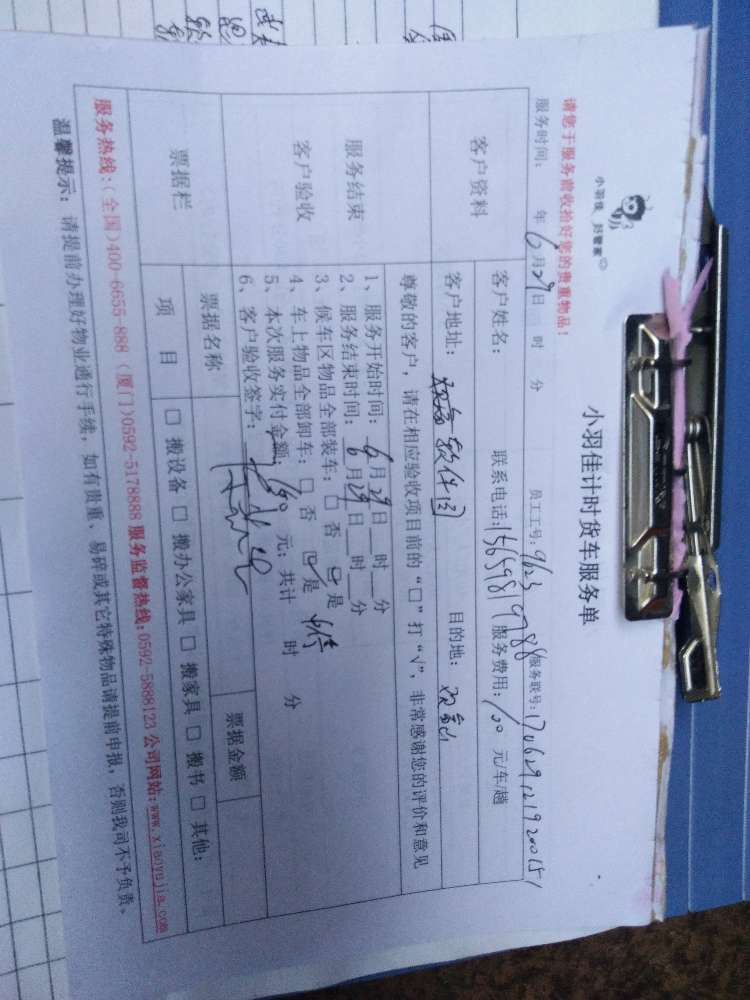 小羽佳 好管家
小羽佳计时货车服务单
请您于服务前收拾好您的贵重物品！
服务时间： 年 6月29日 时 分 员工工号：9623 服务联号：1706291219200151
客户资料
客户姓名： 联系电话：15659819788 服务费用：100 元/车/趟
客户地址： 软件园 目的地：
尊敬的客户，请在相应验收项目前的“□”打“√”，非常感谢您的评价和意见
服务结束
客户验收
1、服务开始时间：6月29日 时 分
2、服务结束时间：6月29日 时 分
3、候车区物品全部装车：□ 否 ☑ 是
4、车上物品全部卸车：□ 否 ☑ 是
5、本次服务实付金额： 元；共计 时 分
6、客户验收签字：
票据栏
票据名称 票据金额
项 目 □ 搬设备 □ 搬办公家具 □ 搬家具 □ 搬书 □ 其他：
服务热线：(全国)400-6655-888 (厦门)0592-5178888 服务监督热线：0592-5888123 公司网站：www.xiaoyujia.com
温馨提示：请提前办理好物业通行手续，如有贵重、易碎或其它特殊物品请提前申报，否则我司不予负责。